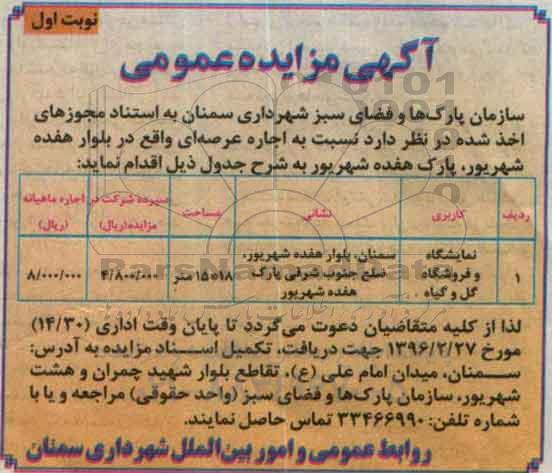 نوبت اول
آگهی مزایده عمومی
سازمان پارک‌ها و فضای سبز شهرداری سمنان به استناد مجوزهای
اخذ شده در نظر دارد نسبت به اجاره عرصه‌ای واقع در بلوار هفده
شهریور، پارک هفده شهریور به شرح جدول ذیل اقدام نماید:
ردیف کاربری نشانی مساحت سپرده شرکت در مزایده(ریال) اجاره ماهیانه (ریال)
۱ نمایشگاه و فروشگاه گل و گیاه سمنان، بلوار هفده شهریور، ضلع جنوب شرقی پارک هفده شهریور ۱۵۰۱۸ متر ۴/۸۰۰/۰۰۰ ۸/۰۰۰/۰۰۰
لذا از کلیه متقاضیان دعوت می‌گردد تا پایان وقت اداری (۱۴/۳۰)
مورخ ۱۳۹۶/۲/۲۷ جهت دریافت، تکمیل اسناد مزایده به آدرس:
سمنان، میدان امام علی (ع)، تقاطع بلوار شهید چمران و هشت
شهریور، سازمان پارک‌ها و فضای سبز (واحد حقوقی) مراجعه و یا با
شماره تلفن: ۳۳۴۶۶۹۹۰ تماس حاصل نمایند.
روابط عمومی و امور بین‌الملل شهرداری سمنان